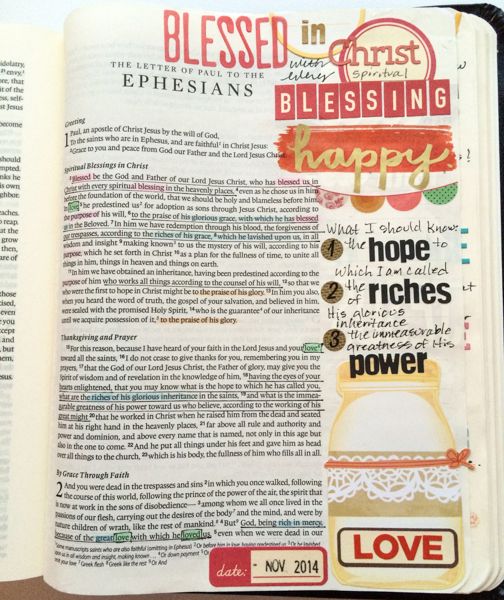 BLESSED in
Christ
with every
spiritual
BLESSING
happy
THE LETTER OF PAUL TO THE
EPHESIANS
Greeting
1 Paul, an apostle of Christ Jesus by the will of God,
To the saints who are in Ephesus, and are faithful¹ in Christ Jesus:
²Grace to you and peace from God our Father and the Lord Jesus Christ.
Spiritual Blessings in Christ
³Blessed be the God and Father of our Lord Jesus Christ, who has blessed us in
Christ with every spiritual blessing in the heavenly places, ⁴even as he chose us in him
before the foundation of the world, that we should be holy and blameless before him.
In love ⁵he predestined us² for adoption as sons through Jesus Christ, according to
the purpose of his will, ⁶to the praise of his glorious grace, with which he has blessed
us in the Beloved. ⁷In him we have redemption through his blood, the forgiveness of
our trespasses, according to the riches of his grace, ⁸which he lavished upon us, in all
wisdom and insight ⁹making known³ to us the mystery of his will, according to his
purpose, which he set forth in Christ ¹⁰as a plan for the fullness of time, to unite all
things in him, things in heaven and things on earth.
¹¹In him we have obtained an inheritance, having been predestined according to the
purpose of him who works all things according to the counsel of his will, ¹²so that we
who were the first to hope in Christ might be to the praise of his glory. ¹³In him you also,
when you heard the word of truth, the gospel of your salvation, and believed in him,
were sealed with the promised Holy Spirit, ¹⁴who is the guarantee⁴ of our inheritance
until we acquire possession of it,⁵ to the praise of his glory.
Thanksgiving and Prayer
¹⁵For this reason, because I have heard of your faith in the Lord Jesus and your love⁶
toward all the saints, ¹⁶I do not cease to give thanks for you, remembering you in my
prayers, ¹⁷that the God of our Lord Jesus Christ, the Father of glory, may give you the
Spirit of wisdom and of revelation in the knowledge of him, ¹⁸having the eyes of your
hearts enlightened, that you may know what is the hope to which he has called you,
what are the riches of his glorious inheritance in the saints, ¹⁹and what is the immea-
surable greatness of his power toward us who believe, according to the working of his
great might ²⁰that he worked in Christ when he raised him from the dead and seated
him at his right hand in the heavenly places, ²¹far above all rule and authority and
power and dominion, and above every name that is named, not only in this age but
also in the one to come. ²²And he put all things under his feet and gave him as head
over all things to the church, ²³which is his body, the fullness of him who fills all in all.
By Grace Through Faith
2 And you were dead in the trespasses and sins ²in which you once walked, following
the course of this world, following the prince of the power of the air, the spirit that
is now at work in the sons of disobedience— ³among whom we all once lived in the
passions of our flesh, carrying out the desires of the body⁷ and the mind, and were by
nature children of wrath, like the rest of mankind.⁸ ⁴But⁹ God, being rich in mercy,
because of the great love with which he loved us, ⁵even when we were dead in our
What I should know:
1 the hope to
which I am called
2 the riches of
His glorious
inheritance
3 the immeasurable
greatness of His
power
LOVE
date: - NOV 2014